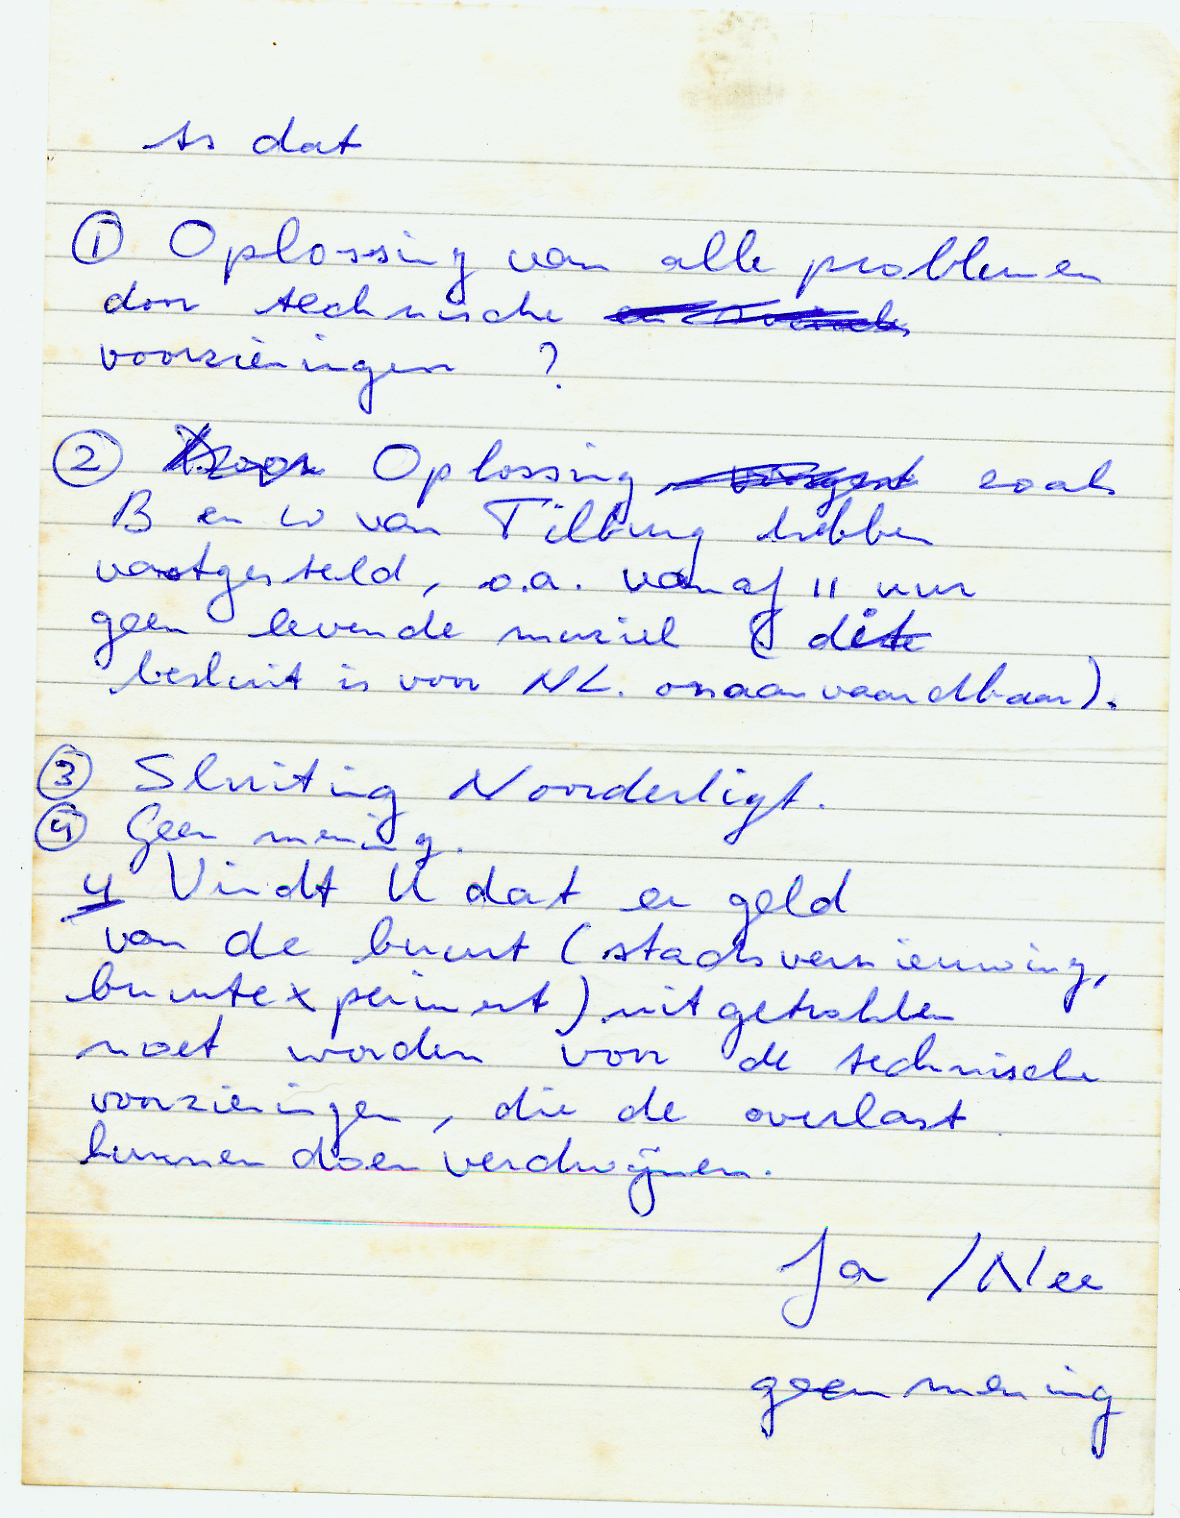 Is dat
① Oplossing van alle problemen
door technische
voorzieningen ?
② Oplossing zoals
B en W van Tilburg hebben
vastgesteld, o.a. vanaf 11 uur
geen levende muziek ( dit
besluit is voor NL. onaanvaardbaar).
③ Sluiting Noorderligt.
④ Geen mening.
4 Vindt U dat er geld
van de buurt (stadsvernieuwing,
buurtexperiment) uitgetrokken
moet worden voor de technische
voorzieningen, die de overlast
kunnen doen verdwijnen.
Ja / Nee
geen mening